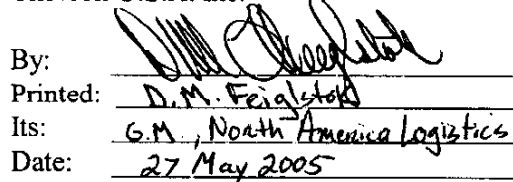 By:
Printed: D.M. Feiglstok
Its: G.M., North America Logistics
Date: 27 May 2005